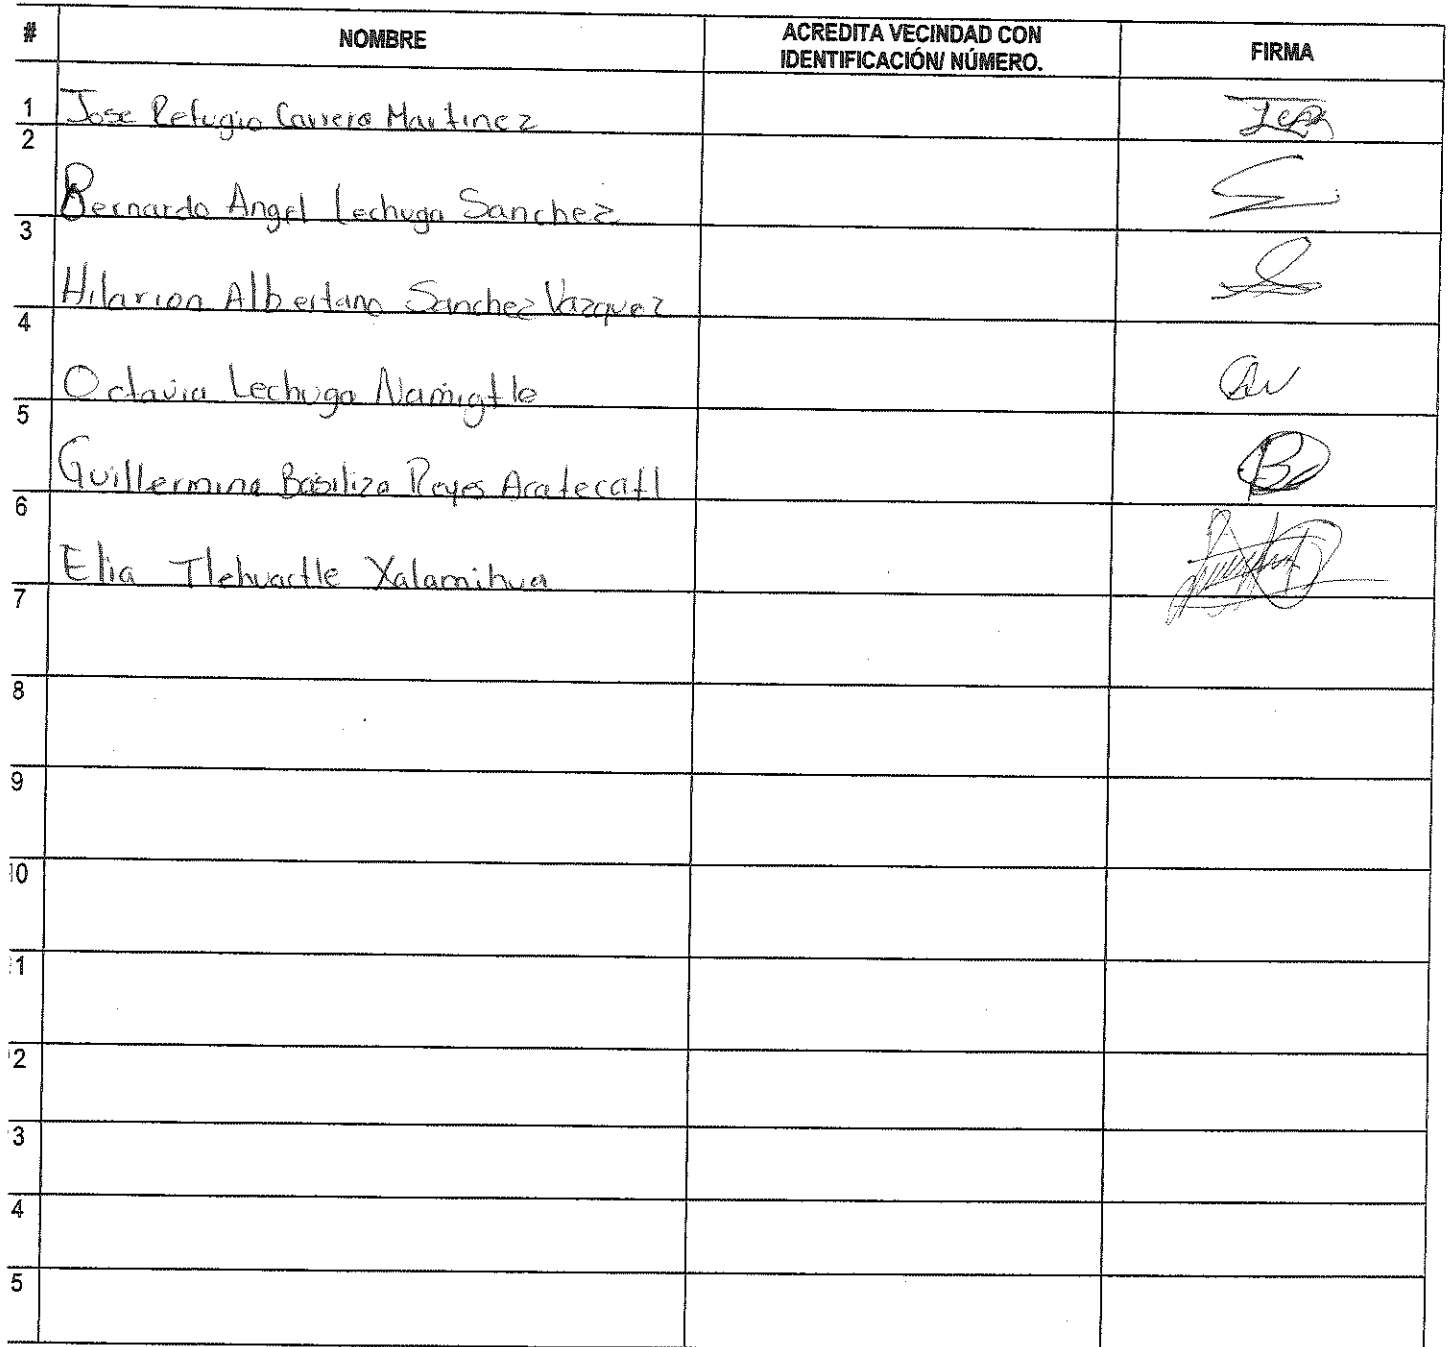 # NOMBRE ACREDITA VECINDAD CON IDENTIFICACIÓN/ NÚMERO. FIRMA
1 Jose Refugio Carrera Martinez
2 Bernardo Angel Lechuga Sanchez
3 Hilarion Albertano Sanchez Vazquez
4 Octavia Lechuga Namigtle
5 Guillermina Basiliza Reyes Acatecatl
6 Elia Tlehuactle Xalamihua
7
8
9
10
11
12
3
4
5